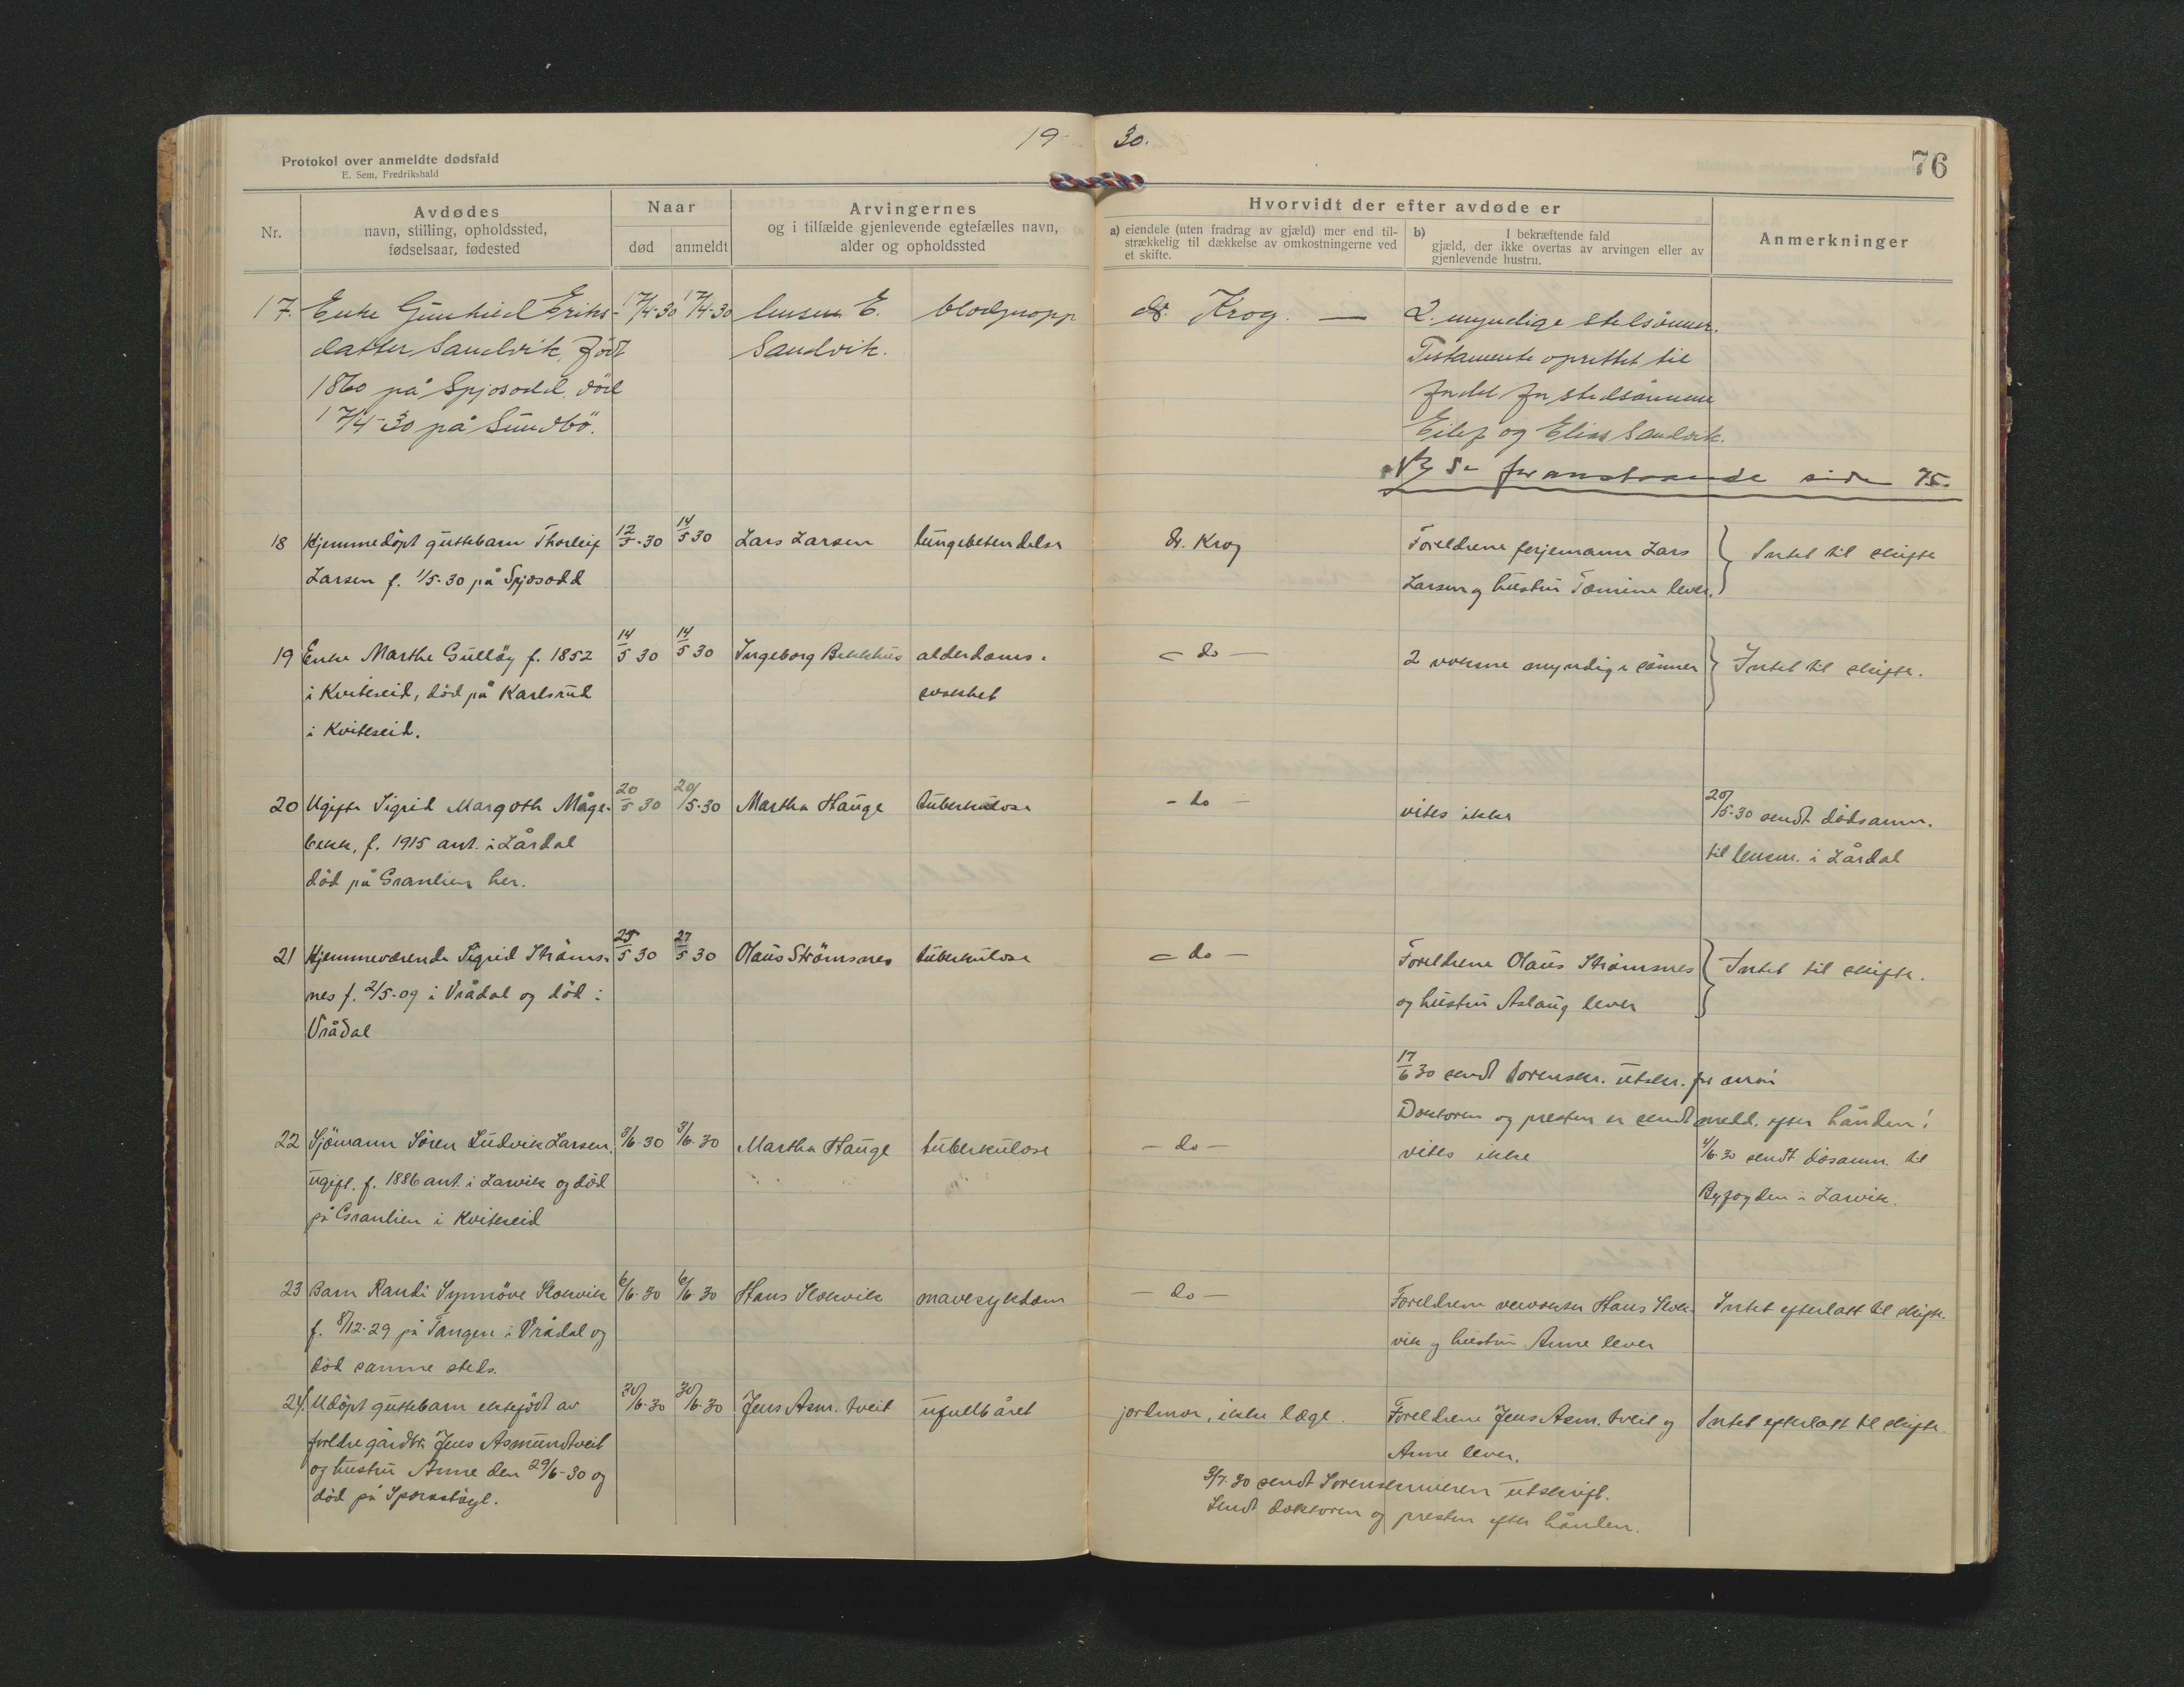 19 30.
Protokol over anmeldte dødsfald
E. Sem, Fredrikshald
76
Nr.
Avdødes
navn, stilling, opholdssted,
fødselsaar, fødested
Naar
død
anmeldt
Arvingernes
og i tilfælde gjenlevende egtefælles navn,
alder og opholdssted
Hvorvidt der efter avdøde er
a) eiendele (uten fradrag av gjæld) mer end til-
strækkelig til dækkelse av omkostningerne ved
et skifte.
b) I bekræftende fald
gjæld, der ikke overtas av arvingen eller av
gjenlevende hustru.
Anmerkninger
17. Enke Gunhild Eriks- 17/4-30 17/4-30 lensm E. blodpropp dr. Krog. — 2 myndige stesønner.
datter Sandvik, født Sandvik. Testamente oprettet til
1860 på Spjosodd, död
17/4-30 på Sundbö. Eilef og Elias Sandvik.
Se foranstaaende side 75.
18 Hjemmedöpt guttebarn Thorleif 12/5-30 14/5 30 Lars Larsen lungebetendelse dr. Krog Foreldrene ferjemann Lars } Intet til skifte
Larsen f. 1/5-30 på Spjosodd Larsen og hustru Tomine lever.
19 Enke Marthe Gulløy f. 1852 14/5 30 14/5 30 Ingeborg Bekkhus alderdoms- - do - 2 voksne myndige sönner } Intet til skifte.
i Kviteseid, död på Karlsrud svakhet
i Kviteseid.
20 Ugifte Sigrid Margoth Måge- 20/5 30 20/5-30 Martha Hauge tuberkulose - do - vites ikke 20/5-30 sendt dödsanm.
bekk, f. 1915 ant. i Lårdal til lensm. i Lårdal
död på Granlien her.
21 Hjemmeværende Sigrid Ströms- 25/5 30 27/5 30 Olaus Strömsnes tuberkulose - do - Foreldrene Olaus Strömsnes } Intet til skifte.
nes f. 2/5-09 i Vrådal og död i og hustru Aslaug lever
Vrådal
17/6 30 sendt Sorenskr. utskr. for mai
Doktoren og presten er sendt meld. efter hånden!
22 Sjömann Sören Ludvik Larsen, 3/6-30 3/6-30 Martha Hauge tuberkulose - do - vites ikke 4/6-30 sendt dösanm. til
ugift. f. 1886 ant. i Larvik og död Byfogden i Larvik.
på Granlien i Kviteseid
23 Barn Randi Synnöve Slokvik 6/6-30 6/6-30 Hans Slokvik mavesykdom - do - Foreldrene Hans Slok- Intet efterlatt til skifte.
f. 8/12-29 på Tangen i Vrådal og vik og hustru Anne lever
död samme steds.
24. Udöpt guttebarn ektefödt av 30/6-30 30/6-30 Jens Asm. tveit ufullbåret jordmor, ikke læge. Foreldrene Jens Asm. tveit og Intet efterlatt til skifte.
foreldre gårdbr. Jens Asmundtveit Anne lever.
og hustru Anne den 29/6-30 og 3/7-30 sendt Sorenskriveren utskrift.
död på Sendt doktoren og presten efter hånden.